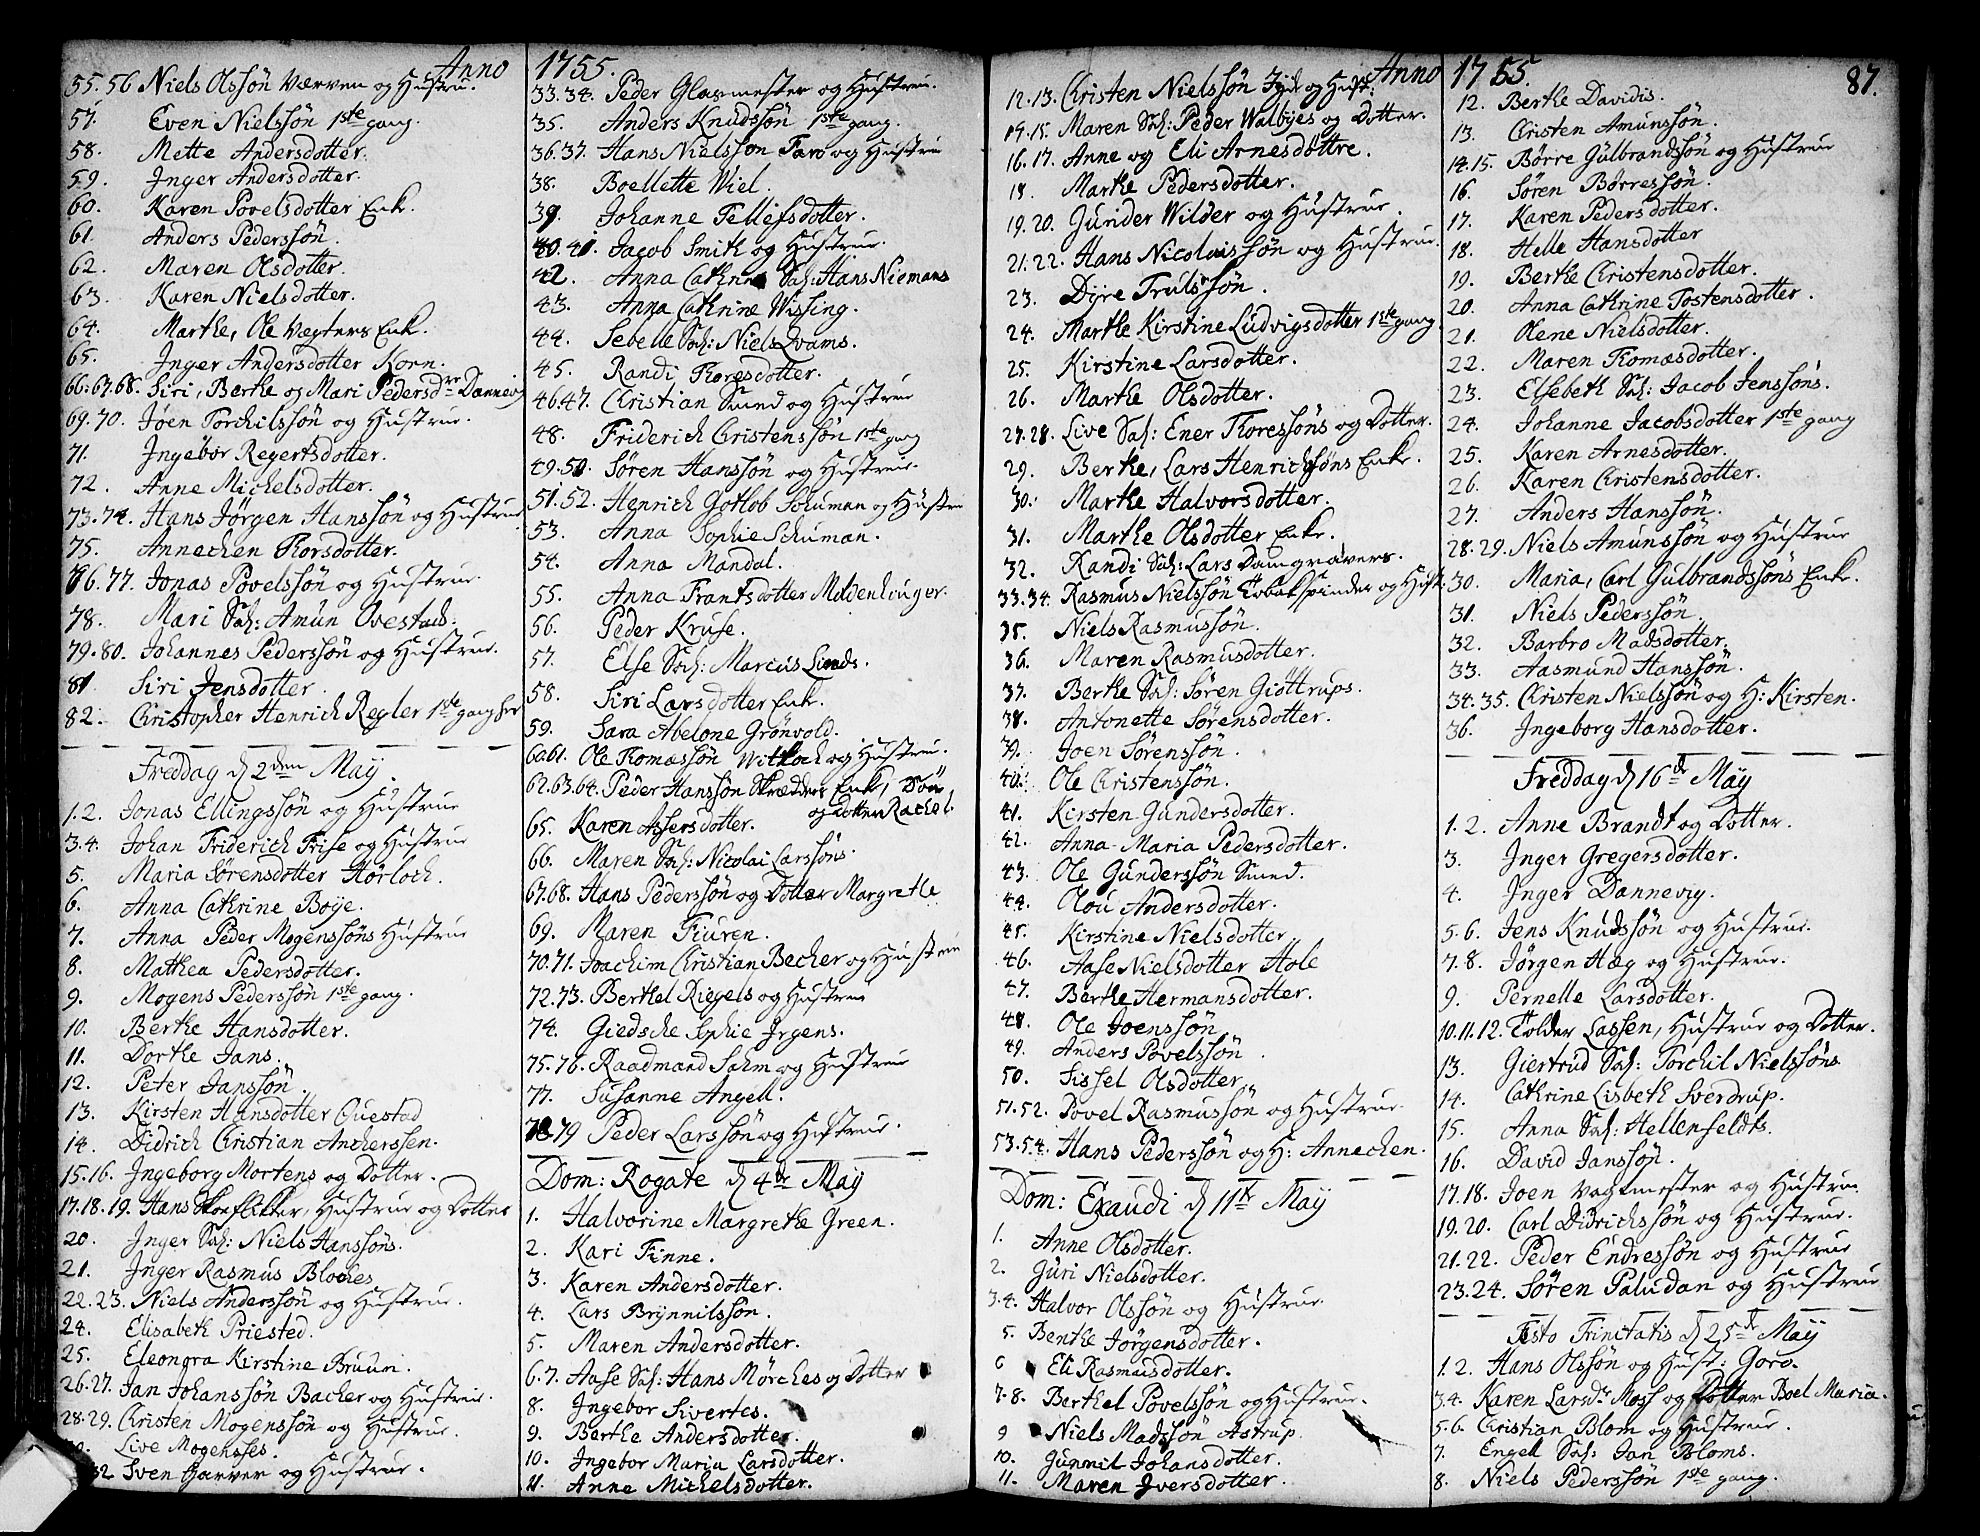 Anno
55.56 Niels Olssön Værven og Hustru.
57. Even Nielssön 1ste gang.
58. Mette Andersdotter.
59. Inger Andersdotter.
60. Karen Povelsdotter Enk.
61. Anders Pederssön.
62. Maren Olsdotter.
63. Karen Nielsdotter.
64. Marthe, Ole Vegters Enk.
65. Inger Andersdotter Korn.
66.67.68. Siri, Berthe og Mari Pedersdr Dannevig
69.70. Joen Torchilssön og Hustrue.
71. Ingebor Regertsdotter.
72. Anne Michelsdotter.
73.74. Hans Jörgen Hanssön og Hustrue
75. Annechen Thorsdotter.
76.77. Jonas Povelssön og Hustrue.
78. Mari Sal: Amun Ovestads.
79.80. Johannes Pederssön og Hustrue.
81 Siri Jensdotter.
82. Christopher Henrich Regler 1ste gang her
Freddag d 2den Maÿ.
1.2. Jonas Ellingssön og Hustrue
3.4. Johan Friderich Frise og Hustrue
5. Maria Sörensdotter Hörloch.
6. Anna Cathrine Boye.
7. Anna Peder Mogenssöns Hustrue
8. Mathea Pedersdotter.
9. Mogens Pederssön 1ste gang.
10. Berthe Hansdotter.
11. Dorthe Jans.
12. Peter Janssön.
13. Kirsten Hansdotter Questad
14. Didrich Christian Ancherssen.
15.16. Ingeborg Mortens og Dotter.
17.18.19. Hans Skoeflikker, Hustrue og Dotter
20. Inger Sal: Niels Hanssöns.
21. Inger Rasmus Bloches
22.23. Niels Anderssön og Hustrue.
24. Elisabeth Priested.
25. Eleonora Kirstine Bruun.
26.27. Jan Johanssön Bacher og Hustrue.
28.29. Christen Mogenssön og Hustrue.
Live Mogenses.
32. Sven Garver og Hustrue.
1755.
33.34. Peder Glasmester og Hustrue.
35. Anders Knudssön 1ste gang.
36.37. Hans Nielsson Faro og Hustrue
38. Boellette Wiel.
39. Johanne Tellefsdotter.
40.41. Jacob Smith og Hustrue.
42. Anna Cathrine Sal: Hans Niemans
43. Anna Cathrine Wissing.
44. Sebelle Sal: Niels Qvams.
45. Randi Thoresdotter.
46.47. Christian Smed og Hustrue
48. Friderich Christenssön 1ste gang
49.50. Sören Hanssön og Hustrue.
51.52. Henrich Gotlob Schuman og Hustrue
53. Anna Sophie Schuman.
54. Anna Mandal.
55. Anna Frantsdotter Moldenhauger.
56. Peder Kruse.
57. Else Sal: Marcus Lunds.
58. Siri Larsdotter Enk.
59. Sara Abelone Grönvold.
60.61. Ole Thomæssön Witloch og Hustrue.
62.63.64. Peder Hanssön Skrædders Enk, Sön
og Dotter Rachel.
65. Karen Assersdotter.
66. Maren Sal: Nicolai Larssöns.
67.68. Hans Pederssön og Dotter Margrethe
69. Maren Fiuren.
70.71. Joachim Christian Becher og Hustrue
72.73. Berthel Riegels og Hustrue
74. Giedsche Sophie Irgens.
75.76. Raadmand Sahm og Hustrue
77. Susanne Angell.
78.79 Peder Larssön og Hustrue.
Dom: Rogate d 4de Maÿ
1. Halvorine Margrethe Green.
2. Kari Finne.
3. Karen Andersdotter.
4. Lars Brÿnnilssön.
5. Maren Andersdotter.
6.7. Aase Sal: Hans Mörches og Dotter
8. Ingebor Siverts.
9. Berthe Andersdotter.
10. Ingebor Maria Larsdotter.
11. Anne Michelsdotter.
Anno
12.13. Christen Nielssön Jÿde og Hust:
14.15. Maren Sal: Peder Walbyes og Dotter.
16.17. Anne og Eli Arnesdöttre.
18. Marthe Pedersdotter.
19.20. Gunder Wilder og Hustrue.
21.22. Hans Nicolaissön og Hustrue.
23. Dÿre Trulssön.
24. Marthe Kirstine Ludvigsdotter 1ste gang
25. Kirstine Larsdotter.
26. Marthe Olsdotter.
27.28. Live Sal: Ener Thoressöns og Dotter.
29. Berthe, Lars Henrichsöns Enke.
30. Marthe Halvorsdotter.
31. Marthe Olsdotter Enke.
32. Randi Sal: Lars Damgravers.
33.34. Rasmus Nielssön Tobakspinder og Hust.
35. Niels Rasmussön.
36. Maren Rasmusdotter.
37. Berthe Sal: Sören Giöttrups.
38. Antonette Sörensdotter.
39. Joen Sörenssön.
40. Ole Christenssön.
41. Kirsten Gundersdotter.
42. Anna Maria Pedersdotter.
43. Ole Gunderssön Smed.
44. Olou Andersdotter.
45. Kirstine Nielsdotter
46. Aase Nielsdotter Hole
47. Berthe Hermansdotter.
48. Ole Joenssön
49. Anders Povelssön.
50. Sissel Olsdotter
51.52. Povel Rasmussön og Hustrue.
53.54. Hans Pederssön og H: Annechen.
Dom: Exaudi d 11te Maÿ
1. Anne Olsdotter.
2. Guri Nielsdotter.
3.4. Halvor Olssön og Hustrue.
5. Benthe Jörgensdotter.
6 Eli Rasmusdotter.
7.8. Berthel Povelssön og Hustrue.
9 Niels Madssön Astrup.
10. Gunnil Johansdotter.
11. Maren Iversdotter.
1755.
87.
12. Berthe Davidis.
13. Christen Amunssön.
14.15. Börre Gulbrandssön og Hustrue
16. Sören Börressön.
17. Karen Pedersdotter.
18. Helle Hansdotter
19. Berthe Christensdotter.
20. Anna Cathrine Tostensdotter.
21. Olene Nielsdotter.
22. Maren Thomæsdotter.
23. Elsebeth Sal: Jacob Jenssöns.
24. Johanne Jacobsdotter 1ste gang
25. Karen Arnesdotter.
26. Karen Christensdotter.
27. Anders Hanssön.
28.29. Niels Amunssön og Hustrue
30. Maria, Carl Gulbrandssöns Enke.
31. Niels Pederssön.
32. Barbro Madsdotter.
33. Aasmund Hanssön.
34.35. Christen Nielssön og H: Kirsten.
36. Ingeborg Hansdotter.
Freddag d 16de Maÿ
1.2. Anne Brandt og Dotter.
3. Inger Gregersdotter.
4. Inger Dannevig.
5.6. Jens Knudssön og Hustrue.
7.8. Jörgen Hæg og Hustrue.
9. Pernelle Larsdotter.
10.11.12. Tolder Lassen, Hustrue og Dotter.
13. Giertrud Sal: Torchil Nielssöns
14. Cathrine Lisbeth Sverdrup.
15. Anna Sal: Hellenfeldts.
16. David Janssön.
17.18. Joen Vagtmester og Hustrue
19.20. Carl Didrichssön og Hustrue.
21.22. Peder Endressön og Hustrue
23.24. Sören Paludan og Hustrue
Festo Trinitatis d 25de Maÿ
1.2. Hans Olssön og Hust: Goro.
3.4. Karen Larsdr Moss og Dotter Boel Maria.
5.6. Christian Blom og Hustrue.
7. Engell Sal: Jan Bloms.
8. Niels Pederssön 1ste gang.